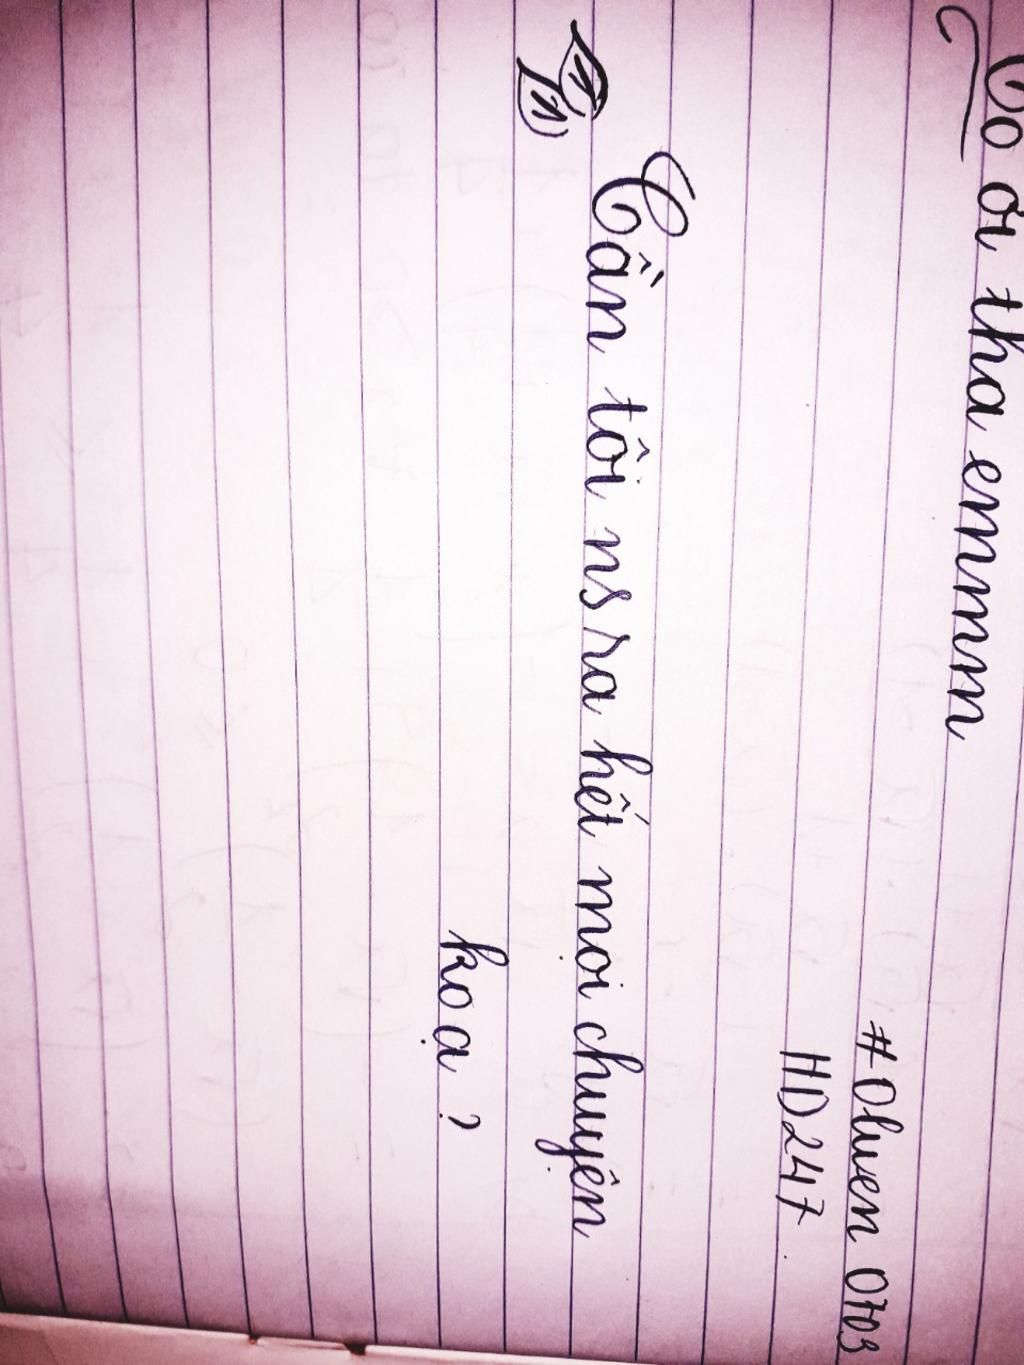 Cô ơi tha emmmm
#Olwen 0703
HD247
Cần tôi ns ra hết mọi chuyện
ko ạ?